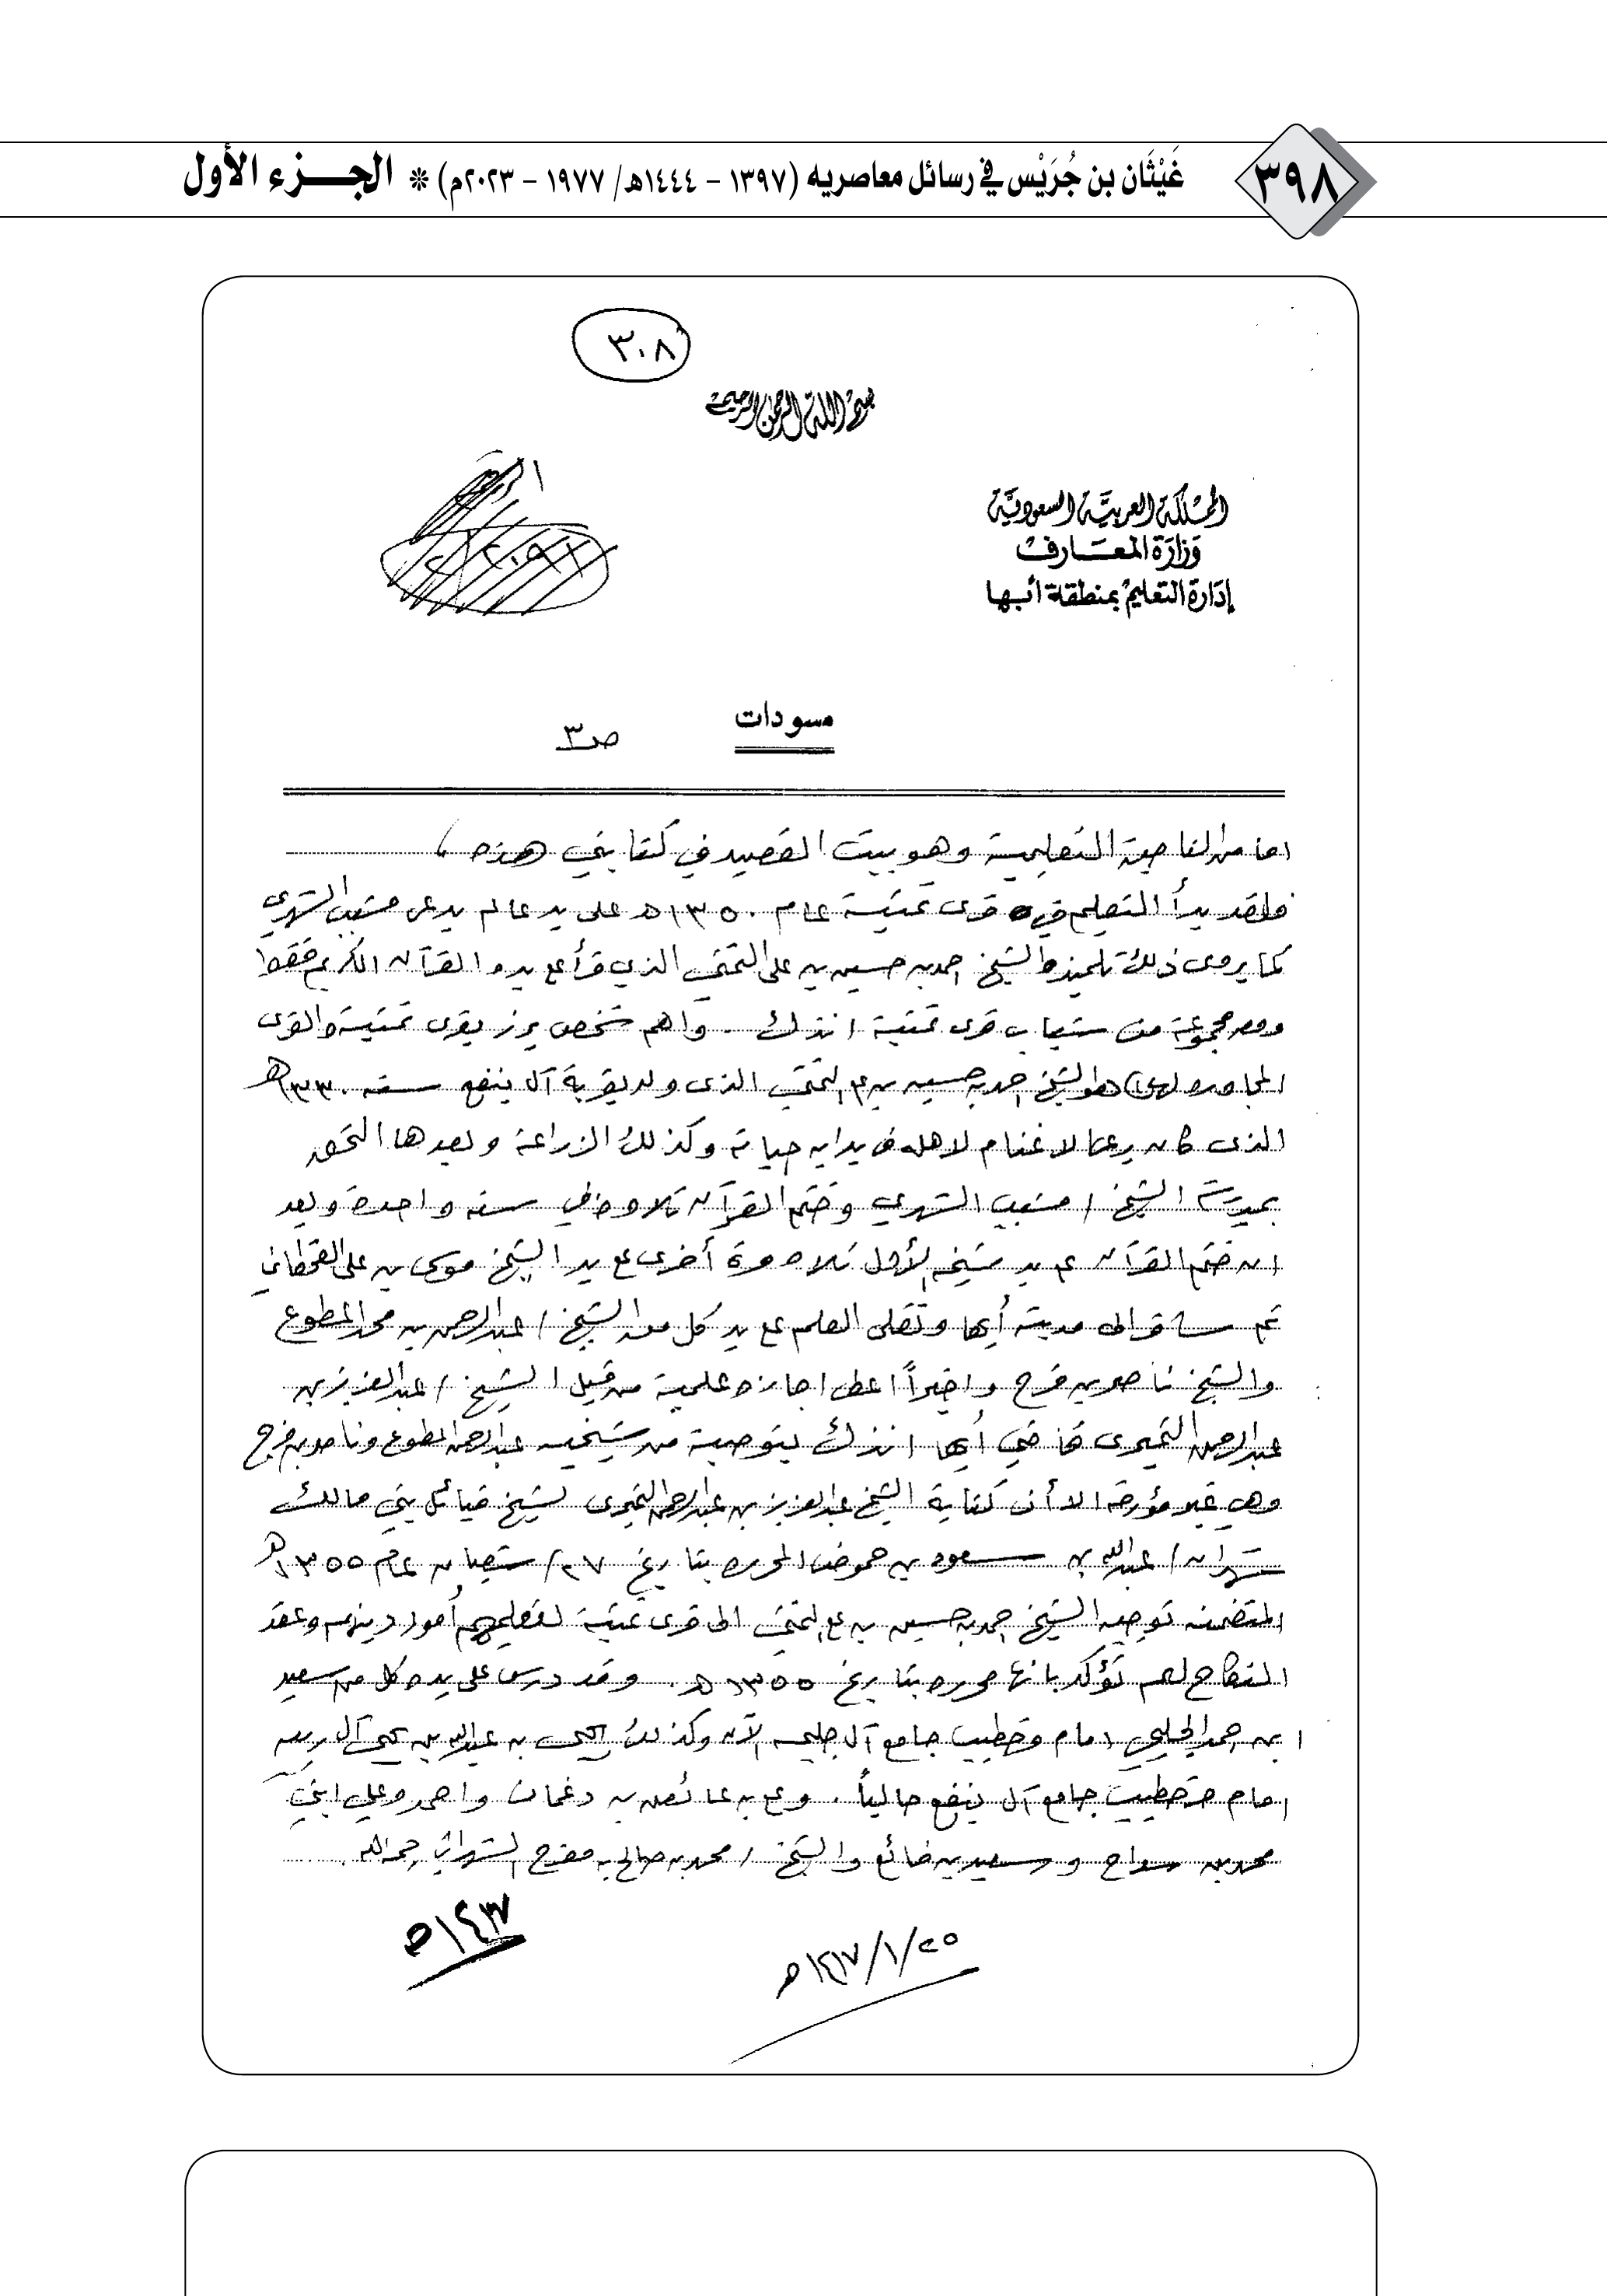 ٣٩٨
غَيْثَان بن جُرَيْس في رسائل معاصريه (١٣٩٧ – ١٤٤٤هـ/ ١٩٧٧ – ٢٠٢٣م) * الجـــزء الأول
٣٠٨
بسم الله الرحمن الرحيم
المملكة العربية السعودية
وزارة المعارف
إدارة التعليم بمنطقة أبها
مسودات
ص٣
اما من الناحية التعليمية وهو بيت القصيد في كتابتي هذه ،
فلقد بدأ التعليم في قرى تمنية عام ١٣٥٠هـ على يد عالم يدعى مشبب الشهري
كما يروى ذلك تلميذه الشيخ احمد بن حسين بن علي التمني الذي قرأ ع يده القرآن الكريم فقط
ومجموعة من شباب قرى تمنية انذك . واهم شخص برز بقرى تمنية والقرى
المجاورة لها هو الشيخ احمد بن حسين بن ع التمني الذى ولد بقرية آل ينفع سنه ١٣٣٠هـ
الذى كان يرعى الاغنام لاهله في بداية حياته وكذلك الزراعة وبعدها التحق
بمدرسة الشيخ / مشبب الشهري وختم القرآن تلاوة في سنه واحدة وبعد
ان ختم القرآن ع يد شيخه الأول تلاه مرة أخرى ع يد الشيخ موسى بن علي القحطاني
ثم سافر الى مدينة أبها وتلقى العلم ع يد كل من الشيخ / عبدالرحمن بن محمد المطوع
والشيخ ناصر بن فرج واخيراً اعطى اجازه علمية من قبل الشيخ / عبدالعزيز بن
عبدالرحمن الثميرى قاضي أبها انذك بتوصية من شيخيه عبدالرحمن المطوع وناصر بن فرج
وهي غير مؤرخه الا أن كتابة الشيخ عبدالعزيز بن عبدالرحمن الثميرى لشيخ قبائل بني مالك
شهران / عبدالله بن سعود بن حموض المحرره بتاريخ ٢٧/ شعبان عام ١٣٥٥هـ
المتضمنه توجيه الشيخ احمد بن حسين بن ع التمني الى قرى تمنية لتعليمهم أمور دينهم وعقد
النكاح لهم تؤكد بانها محرره بتاريخ ١٣٥٥هـ . وقد درس على يده كل من سعيد
ابن احمد الجليحي امام وخطيب جامع آل جليحه الآن وكذلك يحيى بن عبدالله بن يحيى آل
امام وخطيب جامع آل ينفع حالياً . وع بن عائض بن دغمان واحمد وعلي ابني
محمد بن سواح و سعيد بن ضائع والشيخ / محمد بن صالح بن مفرح الشهراني رحمه الله .
٢٥/١/١٤١٧هـ